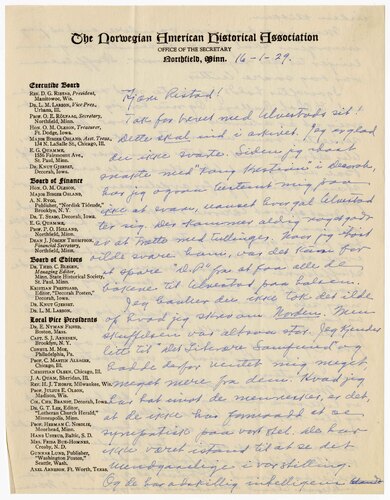 The Norwegian American Historical Association
OFFICE OF THE SECRETARY
Northfield, Minn. 16-1-29.
Executive Board
REV. D. G. RISTAD, President,
Manitowoc, Wis.
DR. L. M. LARSON, Vice Pres.,
Urbana, Ill.
PROF. O. E. RÖLVAAG, Secretary,
Northfield, Minn.
HON. O. M. OLESON, Treasurer,
Ft. Dodge, Iowa.
MAJOR BIRGER OSLAND, Asst. Treas.,
134 N. LaSalle St., Chicago, Ill.
E. G. QUAMME,
1595 Fairmount Ave.,
St. Paul, Minn.
DR. KNUT GJERSET,
Decorah, Iowa.
Board of Finance
HON. O. M. OLESON,
MAJOR BIRGER OSLAND,
A. N. RYGG,
Publisher, "Nordisk Tidende,"
Brooklyn, N. Y.
DR. T. STABO, Decorah, Iowa.
E. G. QUAMME,
PROF. P. O. HOLLAND,
Northfield, Minn.
DEAN J. JÖRGEN THOMPSON,
Financial Secretary,
Northfield, Minn.
Board of Editors
DR. THEO. C. BLEGEN,
Managing Editor,
Minn. State Historical Society
St. Paul, Minn.
KRISTIAN PRESTGARD,
Editor, "Decorah Posten,"
Decorah, Iowa.
DR. KNUT GJERSET,
DR. L. M. LARSON.
Local Vice Presidents
Boston, Mass.
CAPT. S. J. ARNESEN,
Brooklyn, N. Y.
Philadelphia, Pa.
Chicago, Ill.
CHRISTIAN OLSEN, Chicago, Ill.
J. A. QUAM, Sheridan, Ill.
REV. H. J. THORPE, Milwaukee, Wis.
PROF. JULIUS E. OLSON,
Madison, Wis.
COL. CHS. BRANDT, Decorah, Iowa.
DR. G. T. LEE, Editor,
"Lutheran Church Herald,"
Minneapolis, Minn.
Moorhead, Minn.
HANS USTRUD, Baltic, S. D.
Crosby, N. D.
GUNNAR LUND, Publisher,
"Washington Posten,"
Seattle, Wash.
AXEL ARNESON, Ft. Worth, Texas.
Kjære Ristad!
Tak for brevet med Ulvestads sit!
Dette skal ind i arkivet. Jeg er glad
du ikke svarte. Siden jeg
snakte med i Decorah,
har jeg ogsaa bestemt mig paa
ikke at svare, uanset hvad Ulvestad
ter sig. Der kommer aldrig noget godt
af at trætte med tullinger. Hvor jeg først
vilde svare ham var det bare for
at spare for at faa alle de
bøkene til Ulvestad paa halsen.
du ikke tok det ilde
op hvad jeg skrev om Norden. Min
skuffelse var altfor stor. Jeg kjender
litt til "Det Literære Samfund" og
hadde derfor ventet mig meget
meget mere fra dem. Hvad jeg
har hat mot de mennesker, er det,
at de ikke har formaadd at se
sympatisk paa vort stel. De har
ikke været istand til at se det
i vor stilling.
Og de har adskillig intelligens